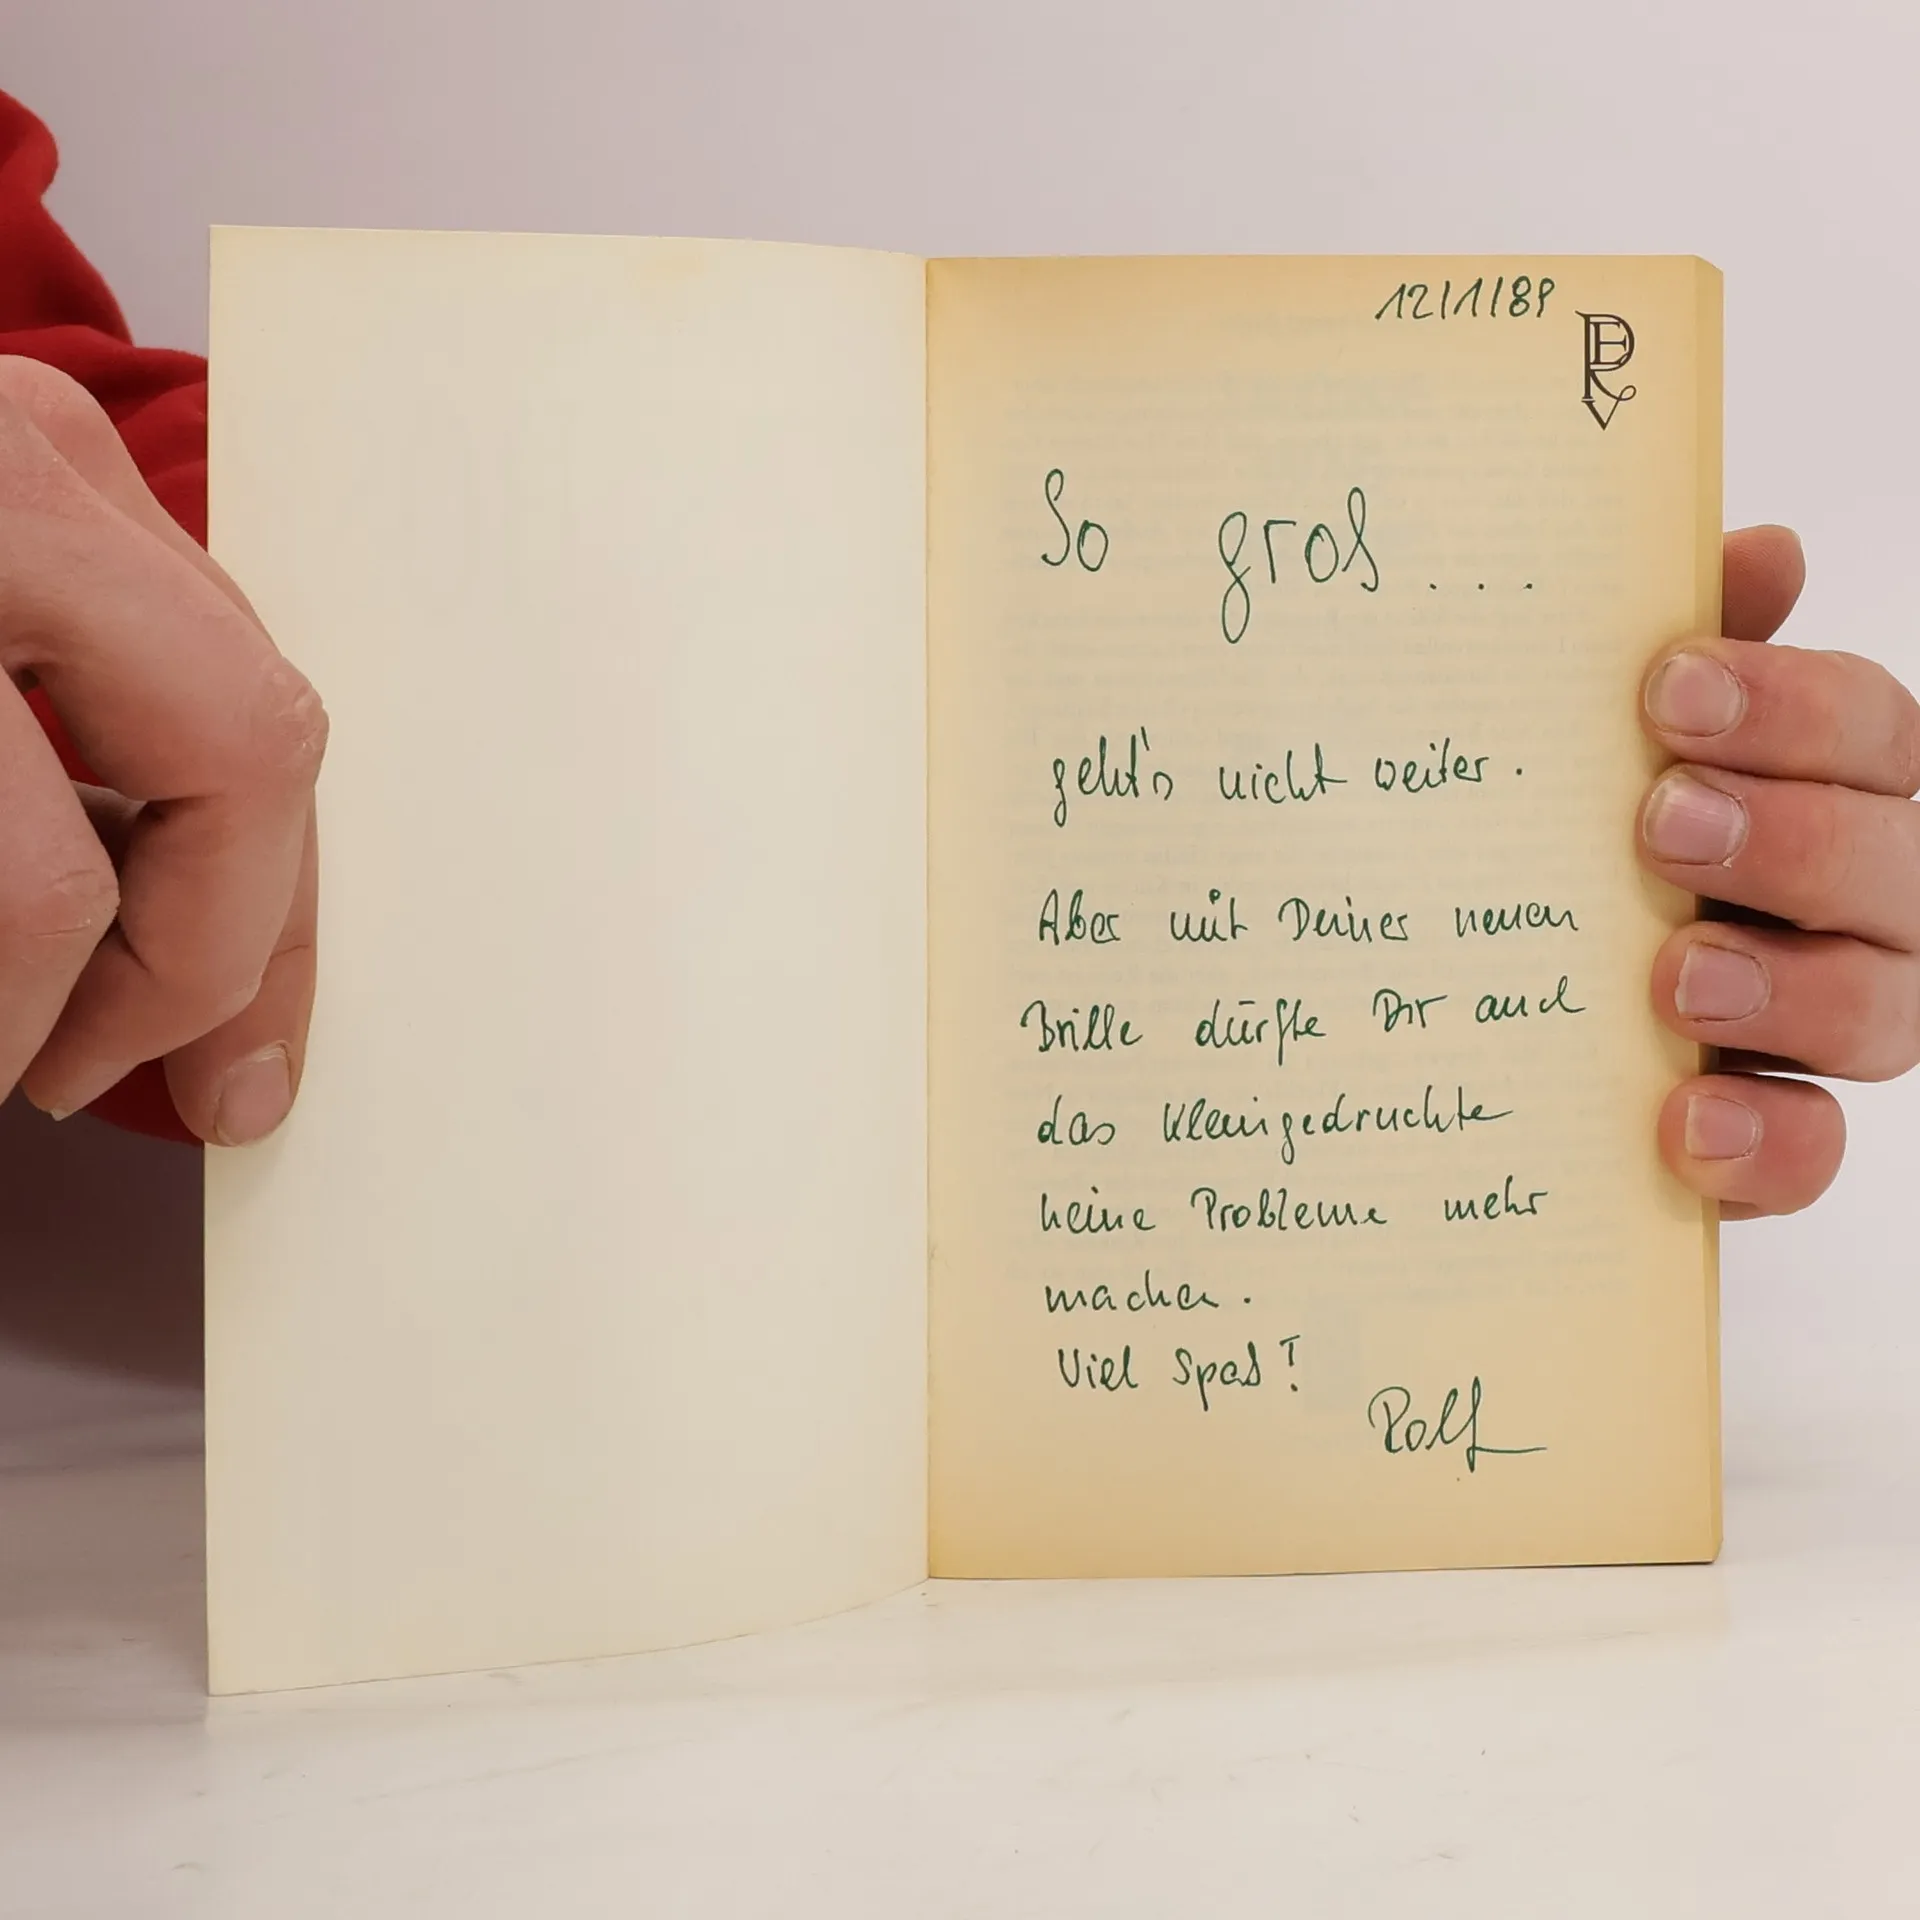 12/1/89
ERV
So groß ....
geht's nicht weiter.
Aber mit Deiner neuen
Brille dürfte Dir auch
das Kleingedruckte
keine Probleme mehr
machen.
Viel Spaß!
Rolf